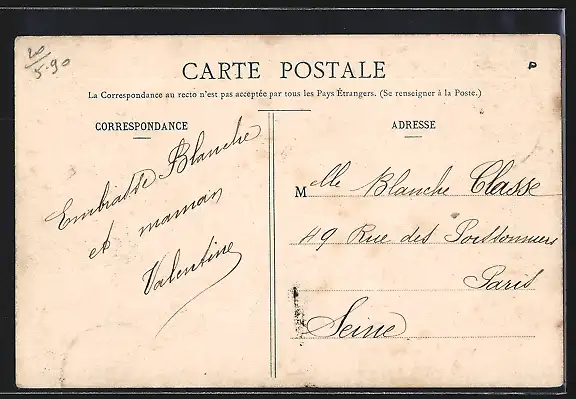 20
5-90
CARTE POSTALE
P
La Correspondance au recto n'est pas acceptée par tous les Pays Étrangers. (Se renseigner à la Poste.)
CORRESPONDANCE
Embrasse Blanche
et maman
Valentine
ADRESSE
Melle Blanche Classe
49 Rue des Poissonniers
Paris
Seine